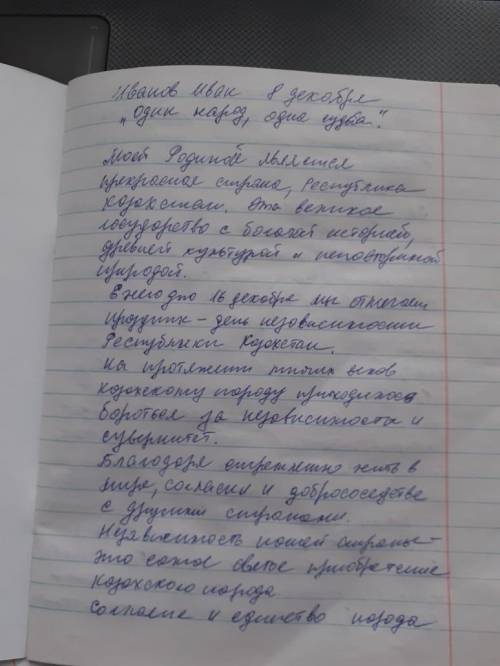 Иванов Иван 8 декабря
„Один народ, одна судьба“.
Моей Родиной является
прекрасная страна, Республика
Казахстан. Это великое
государство с богатой историей,
древней культурой и неповторимой
природой.
Ежегодно 16 декабря мы отмечаем
праздник – день независимости
Республики Казахстан.
На протяжении многих веков
казахскому народу приходилось
бороться за независимость и
суверинтет.
Благодаря стремлению жить в
мире, согласии и добрососедстве
с другими странами.
Независимость нашей страны –
это самое светое приобретение
казахского народа
Согласие и единство народа